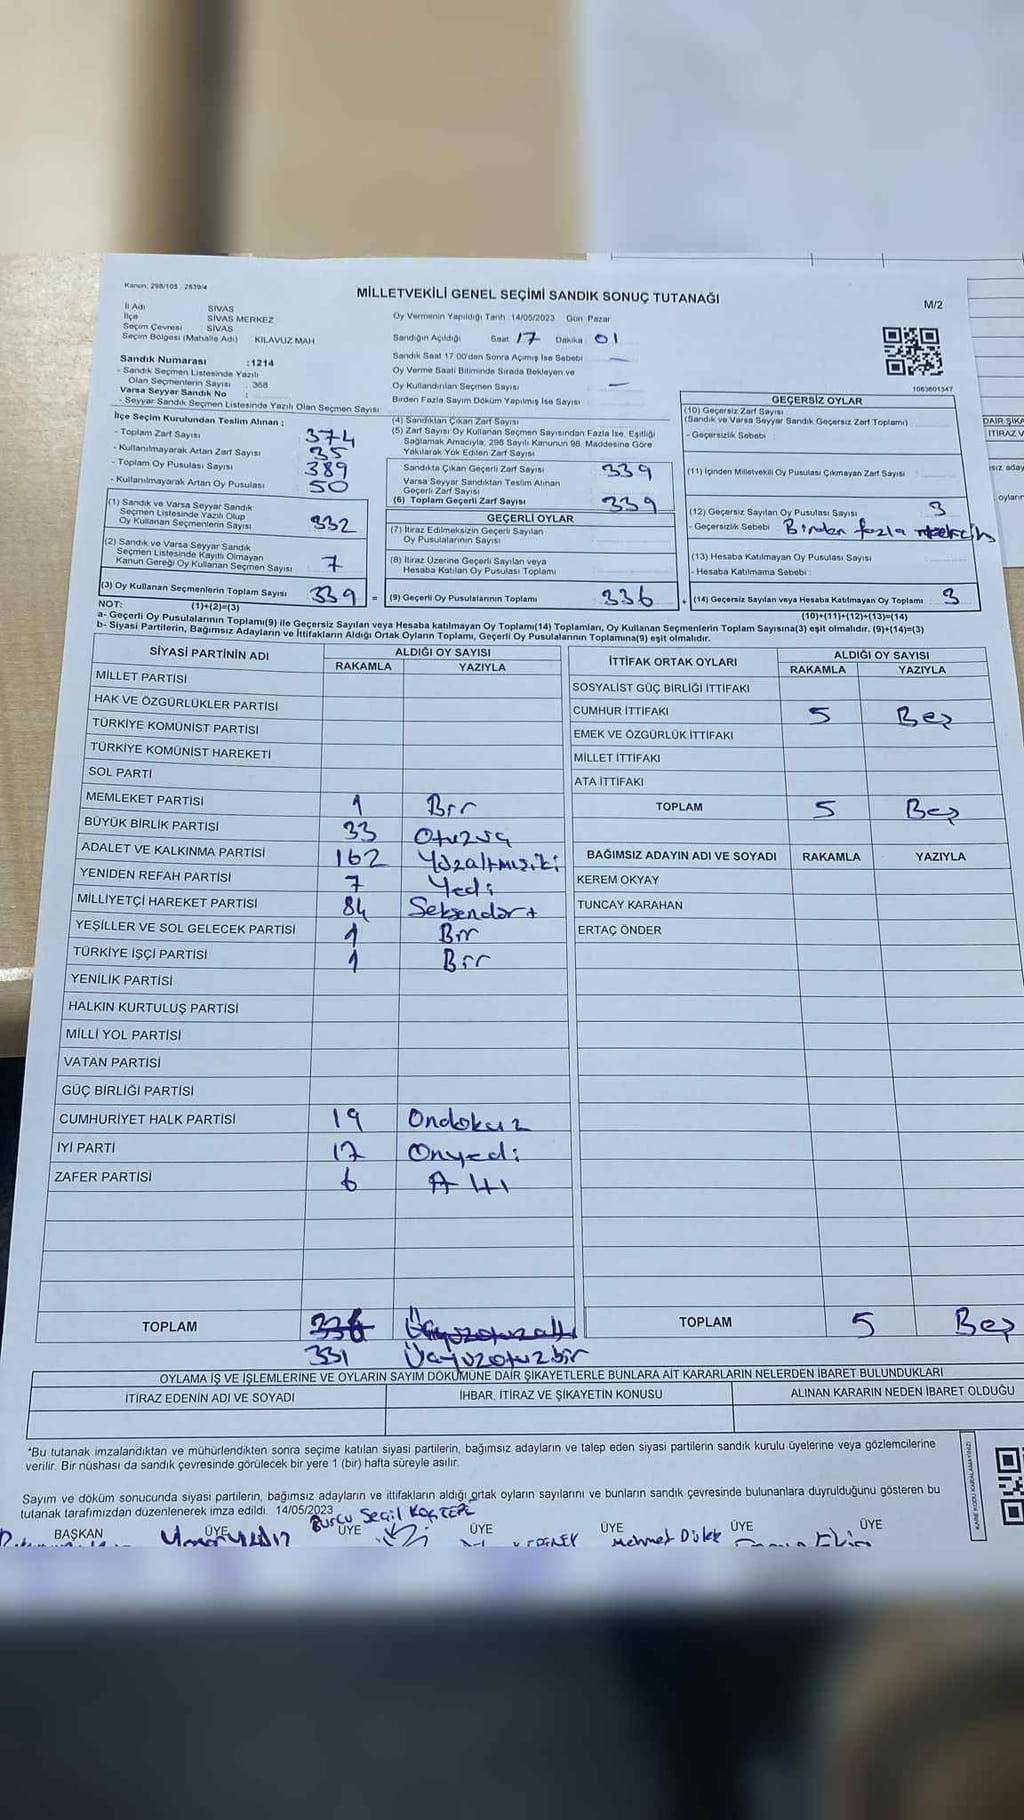 Kanun: 298/105 : 2839/4
MİLLETVEKİLİ GENEL SEÇİMİ SANDIK SONUÇ TUTANAĞI
M/2
İl Adı SİVAS
İlçe SİVAS MERKEZ
Seçim Çevresi SİVAS
Seçim Bölgesi (Mahalle Adı) KILAVUZ MAH
Sandık Numarası :1214
- Sandık Seçmen Listesinde Yazılı
Olan Seçmenlerin Sayısı : 368
Varsa Seyyar Sandık No :
- Seyyar Sandık Seçmen Listesinde Yazılı Olan Seçmen Sayısı
Oy Vermenin Yapıldığı Tarih 14/05/2023 Gün: Pazar
Sandığın Açıldığı Saat 17 Dakika 01
Sandık Saat 17.00'den Sonra Açılmış İse Sebebi —
Oy Verme Saati Bitiminde Sırada Bekleyen ve
Oy Kullandırılan Seçmen Sayısı —
Birden Fazla Sayım Döküm Yapılmış İse Sayısı
1063601347
İlçe Seçim Kurulundan Teslim Alınan ;
- Toplam Zarf Sayısı 374
- Kullanılmayarak Artan Zarf Sayısı 35
- Toplam Oy Pusulası Sayısı 389
- Kullanılmayarak Artan Oy Pusulası 50
(1) Sandık ve Varsa Seyyar Sandık
Seçmen Listesinde Yazılı Olup
Oy Kullanan Seçmenlerin Sayısı 332
(2) Sandık ve Varsa Seyyar Sandık
Seçmen Listesinde Kayıtlı Olmayan
Kanun Gereği Oy Kullanan Seçmen Sayısı 7
(3) Oy Kullanan Seçmenlerin Toplam Sayısı 339 =
(1)+(2)=(3)
(4) Sandıktan Çıkan Zarf Sayısı
(5) Zarf Sayısı Oy Kullanan Seçmen Sayısından Fazla İse, Eşitliği
Sağlamak Amacıyla, 298 Sayılı Kanunun 98. Maddesine Göre
Yakılarak Yok Edilen Zarf Sayısı
Sandıkta Çıkan Geçerli Zarf Sayısı 339
Varsa Seyyar Sandıktan Teslim Alınan
Geçerli Zarf Sayısı
(6) Toplam Geçerli Zarf Sayısı 339
GEÇERLİ OYLAR
(7) İtiraz Edilmeksizin Geçerli Sayılan
Oy Pusulalarının Sayısı
(8) İtiraz Üzerine Geçerli Sayılan veya
Hesaba Katılan Oy Pusulası Toplamı
(9) Geçerli Oy Pusulalarının Toplamı 336 +
GEÇERSİZ OYLAR
(10) Geçersiz Zarf Sayısı
(Sandık ve Varsa Seyyar Sandık Geçersiz Zarf Toplamı)
- Geçersizlik Sebebi :
(11) İçinden Milletvekili Oy Pusulası Çıkmayan Zarf Sayısı
(12) Geçersiz Sayılan Oy Pusulası Sayısı 3
- Geçersizlik Sebebi Birden fazla
(13) Hesaba Katılmayan Oy Pusulası Sayısı
- Hesaba Katılmama Sebebi :
(14) Geçersiz Sayılan veya Hesaba Katılmayan Oy Toplamı 3
(10)+(11)+(12)+(13)=(14)
NOT:
a- Geçerli Oy Pusulalarının Toplamı(9) ile Geçersiz Sayılan veya Hesaba katılmayan Oy Toplamı(14) Toplamları, Oy Kullanan Seçmenlerin Toplam Sayısına(3) eşit olmalıdır. (9)+(14)=(3)
b- Siyasi Partilerin, Bağımsız Adayların ve İttifakların Aldığı Ortak Oyların Toplamı, Geçerli Oy Pusulalarının Toplamına(9) eşit olmalıdır.
SİYASİ PARTİNİN ADI ALDIĞI OY SAYISI
RAKAMLA YAZIYLA
MİLLET PARTİSİ
HAK VE ÖZGÜRLÜKLER PARTİSİ
TÜRKİYE KOMÜNİST PARTİSİ
TÜRKİYE KOMÜNİST HAREKETİ
SOL PARTİ
MEMLEKET PARTİSİ 1 Bir
BÜYÜK BİRLİK PARTİSİ 33 Otuzüç
ADALET VE KALKINMA PARTİSİ 162 Yüzaltmışiki
YENİDEN REFAH PARTİSİ 7 Yedi
MİLLİYETÇİ HAREKET PARTİSİ 84 Seksendört
YEŞİLLER VE SOL GELECEK PARTİSİ 1 Bir
TÜRKİYE İŞÇİ PARTİSİ 1 Bir
YENİLİK PARTİSİ
HALKIN KURTULUŞ PARTİSİ
MİLLİ YOL PARTİSİ
VATAN PARTİSİ
GÜÇ BİRLİĞİ PARTİSİ
CUMHURİYET HALK PARTİSİ 19 Ondokuz
İYİ PARTİ 17 Onyedi
ZAFER PARTİSİ 6 Altı
TOPLAM 336 Üçyüzotuzaltı
331 Üçyüzotuzbir
İTTİFAK ORTAK OYLARI ALDIĞI OY SAYISI
RAKAMLA YAZIYLA
SOSYALİST GÜÇ BİRLİĞİ İTTİFAKI
CUMHUR İTTİFAKI 5 Beş
EMEK VE ÖZGÜRLÜK İTTİFAKI
MİLLET İTTİFAKI
ATA İTTİFAKI
TOPLAM 5 Beş
BAĞIMSIZ ADAYIN ADI VE SOYADI RAKAMLA YAZIYLA
KEREM OKYAY
TUNCAY KARAHAN
ERTAÇ ÖNDER
TOPLAM 5 Beş
OYLAMA İŞ VE İŞLEMLERİNE VE OYLARIN SAYIM DÖKÜMÜNE DAİR ŞİKAYETLERLE BUNLARA AİT KARARLARIN NELERDEN İBARET BULUNDUKLARI
İTİRAZ EDENİN ADI VE SOYADI İHBAR, İTİRAZ VE ŞİKAYETİN KONUSU ALINAN KARARIN NEDEN İBARET OLDUĞU
*Bu tutanak imzalandıktan ve mühürlendikten sonra seçime katılan siyasi partilerin, bağımsız adayların ve talep eden siyasi partilerin sandık kurulu üyelerine veya gözlemcilerine
verilir. Bir nüshası da sandık çevresinde görülecek bir yere 1 (bir) hafta süreyle asılır.
Sayım ve döküm sonucunda siyasi partilerin, bağımsız adayların ve ittifakların aldığı ortak oyların sayılarını ve bunların sandık çevresinde bulunanlara duyrulduğunu gösteren bu
tutanak tarafımızdan düzenlenerek imza edildi. 14/05/2023
Burcu Seçil KOÇTEPE
BAŞKAN ÜYE ÜYE ÜYE ÜYE ÜYE ÜYE
Mehmet Dülek
KARE KODU KARALAMAYINIZ!